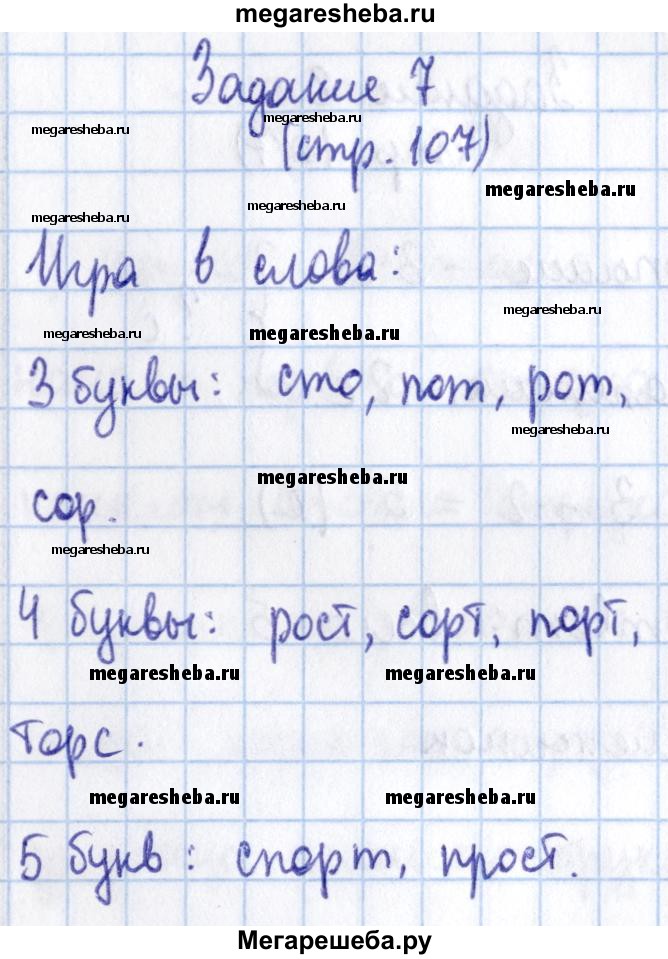 megaresheba.ru
Задание 7
megaresheba.ru
megaresheba.ru
(стр. 107)
megaresheba.ru
megaresheba.ru
megaresheba.ru
Игра в слова:
megaresheba.ru
megaresheba.ru
megaresheba.ru
3 буквы: сто, пот, рот,
megaresheba.ru
megaresheba.ru
сор.
megaresheba.ru
4 буквы: рост, сорт, порт,
megaresheba.ru
megaresheba.ru
торс.
megaresheba.ru
megaresheba.ru
5 букв: спорт, прост.
Мегарешеба.ру